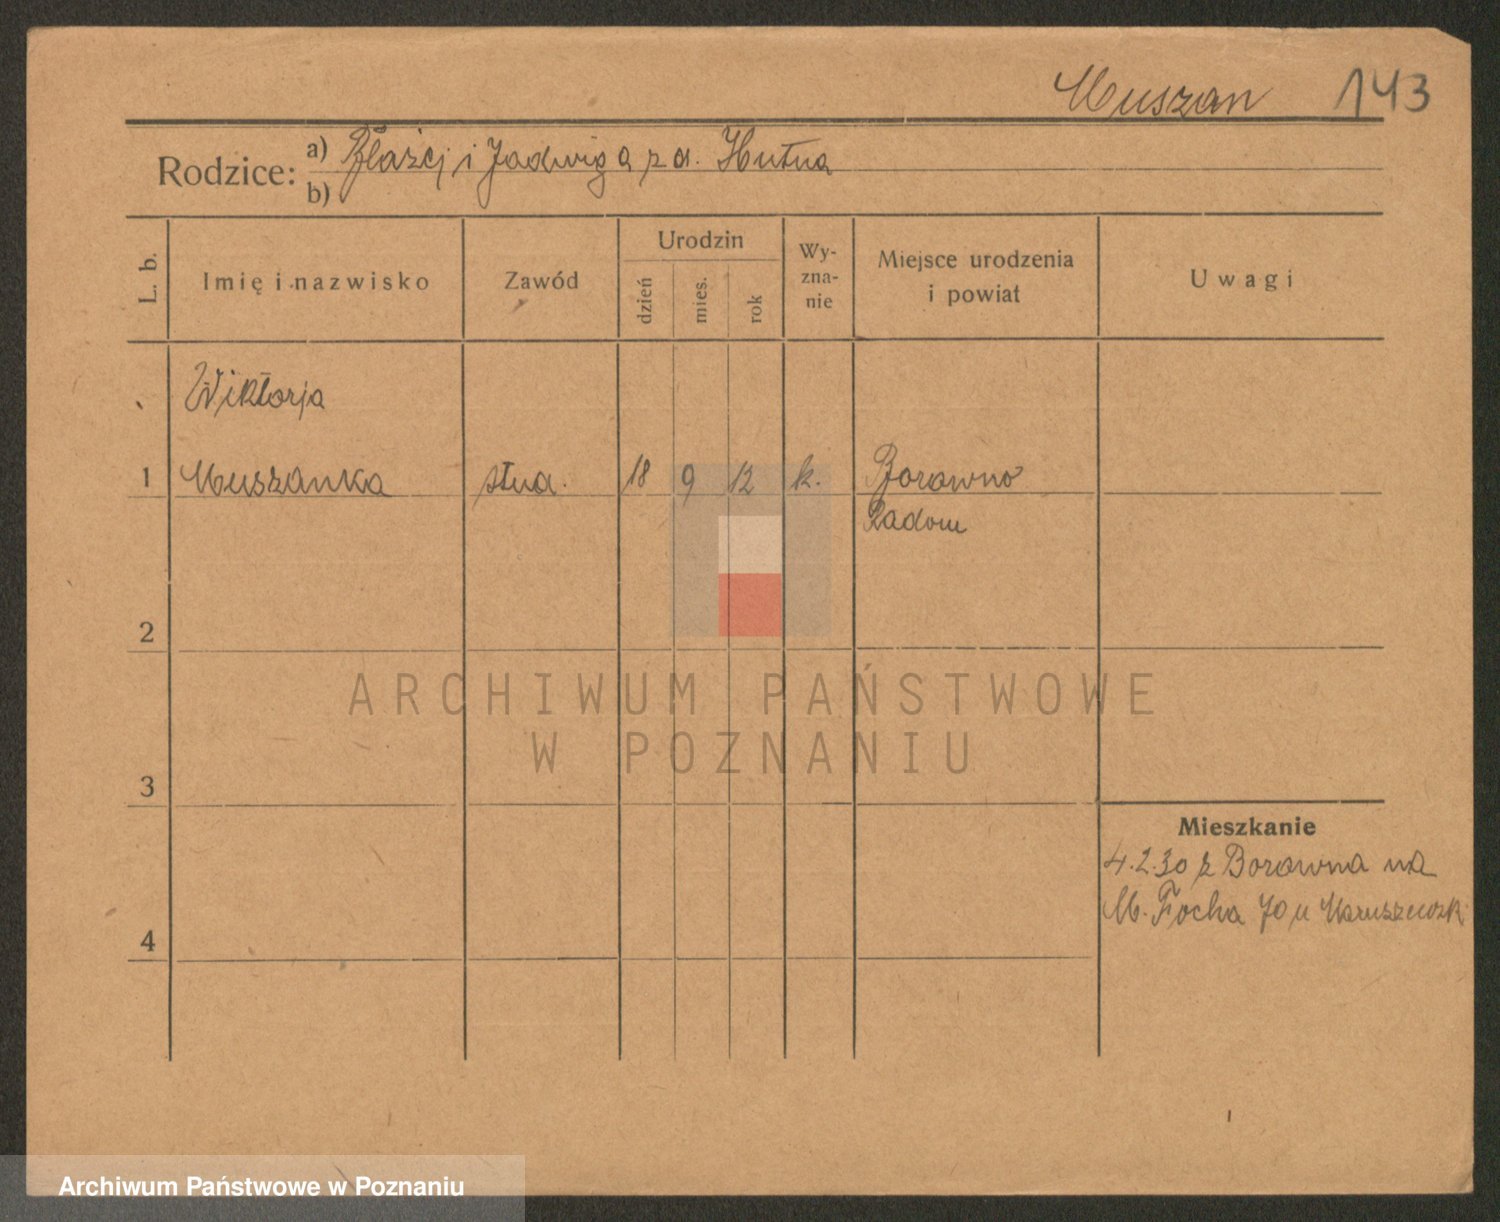 Muszan 143
Rodzice: a) Błażej i Jadwiga z d. Hutna
b)
L. b.
Imię i nazwisko
Zawód
Urodzin
dzień
mies.
rok
Wy-
zna-
nie
Miejsce urodzenia
i powiat
Uwagi
Wiktorja
1 Muszanka służ. 18 9 12 k. Borowno
Radom
2
3
4
Mieszkanie
4.2.30 z Borowna na
M. Focha 70 u
ARCHIWUM PAŃSTWOWE
W POZNANIU
Archiwum Państwowe w Poznaniu